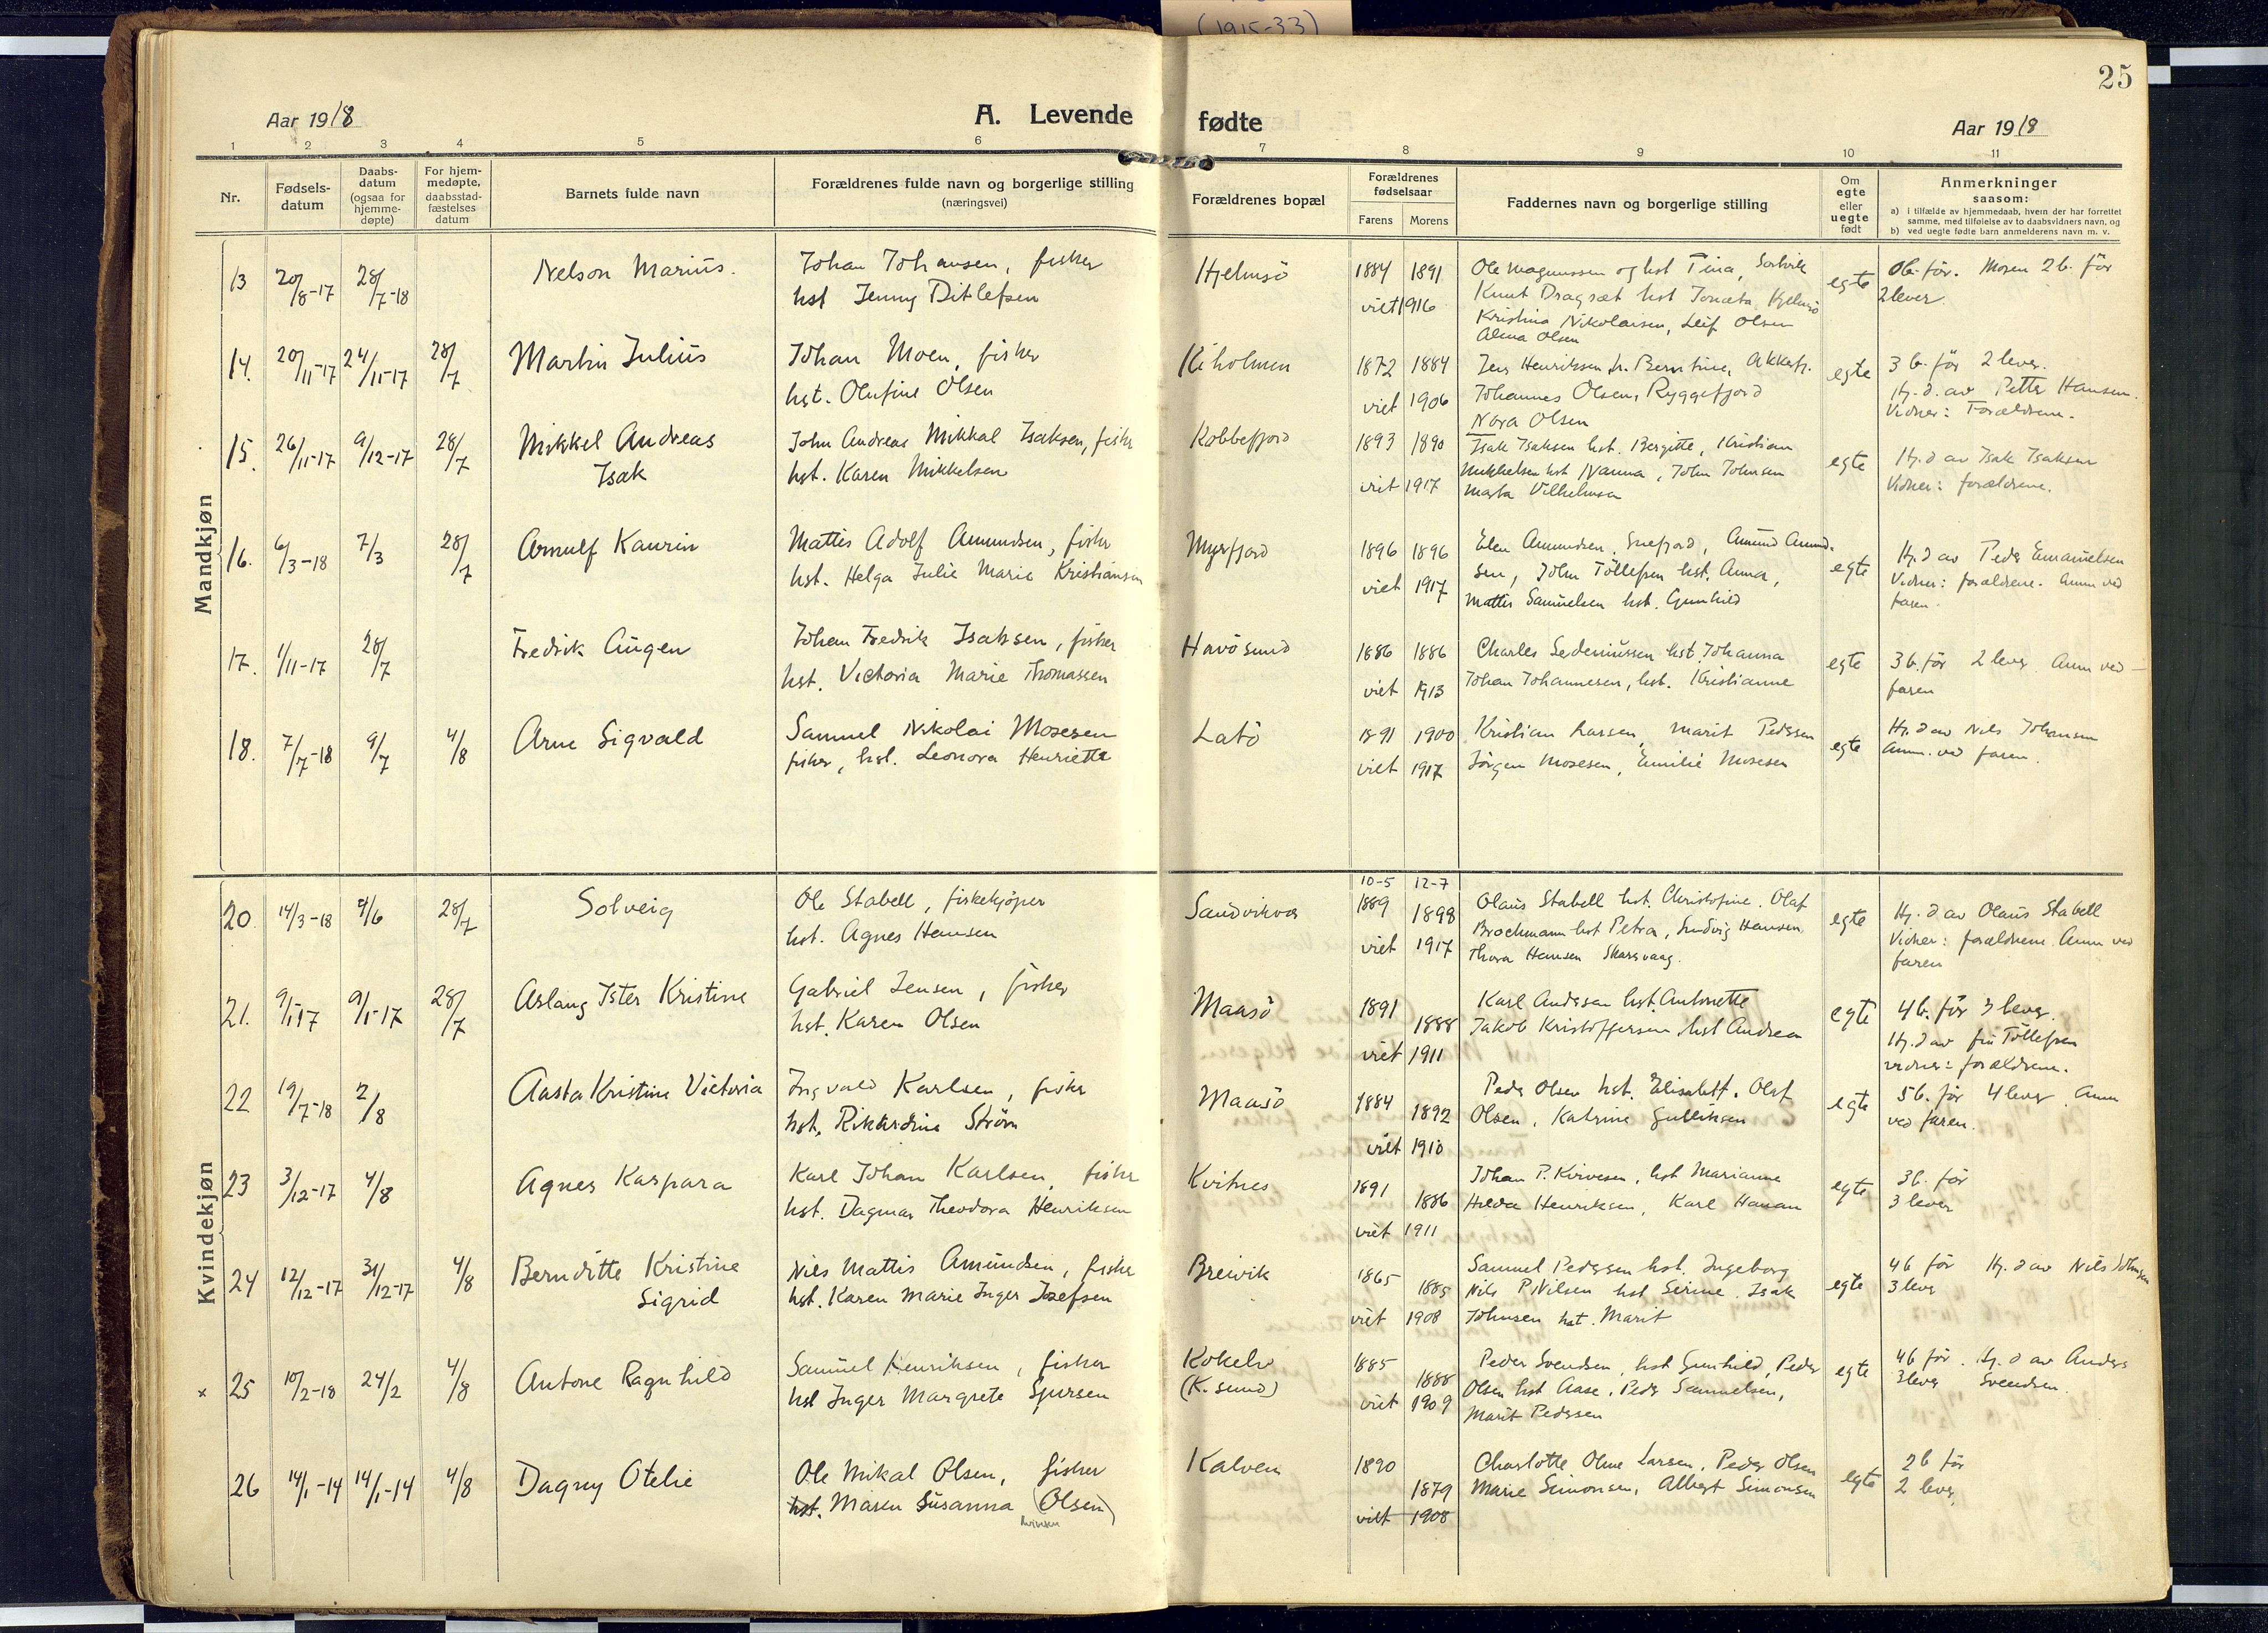 (1915-33)
25
Aar 1918
A. Levende fødte
Aar 1918
1 2 3 4 5 6 7 8 9 10 11
Nr.
Fødsels-
datum
Daabs-
datum
(ogsaa for
hjemme-
døpte)
For hjem-
medøpte,
daabsstad-
fæstelses
datum
Barnets fulde navn
Forældrenes fulde navn og borgerlige stilling
(næringsvei)
Forældrenes bopæl
Forældrenes
fødselsaar
Farens Morens
Faddernes navn og borgerlige stilling
Om
egte
eller
uegte
født
Anmerkninger
saasom:
a) i tilfælde av hjemmedaab, hvem der har forrettet
samme, med tilføielse av to daabsvidners navn, og
b) ved uegte fødte barn anmelderens navn m. v.
Mandkjøn
13 20/8-17 28/7-18 Nelson Marius.
Johan Johansen, fisker
hst Jenny Ditlefsen
Hjelmsö
1884 1891
viet 1916
Ole Magnussen og hst Tina,
Knut Dragsæt hst Jonata, Hjelmsö
Kristina Nikolaisen, Leif Olsen
Alma Olsen
egte
0b. før. Moren 2 b. før
2 lever.
14. 20/11-17 24/11-17 28/7 Martin Julius
Johan Moen, fisker
hst. Olufine Olsen
Kiholmen
1872 1884
viet 1906
Jens Henriksen h. Berntine, Akkarfj.
Johannes Olsen, Ryggefjord
Nora Olsen
egte
3 b. før 2 lever.
Hj. d. av Petter Hansen.
Vidner: Forældrene.
15. 26/11-17 9/12-17 28/7 Mikkel Andreas
Isak
John Andreas Mikkal Isaksen, fisker
hst. Karen Mikkelsen
Kobbefjord
1893 1890
viet 1917
Isak Isaksen hst. Bergitte, Kristian
Mikkelsen hst Nanna, John Johnsen
Marta Vilhelmsen
egte
Hj. d av Isak Isaksen
Vidner: forældrene.
16. 6/3-18 7/3 28/7 Arnulf Kaurin
Mattis Adolf Amundsen, fisker
hst. Helga Julie Marie Kristiansen
Myrfjord
1896 1896
viet 1917
Elen Amundsen, Snefjord, Amund Amund-
sen, John Tollefsen hst. Anna,
Mattis Samuelsen hst. Gunhild
egte
Hj. d av Peder Emanuelsen
Vidner: forældrene. Anm ved
faren.
17. 1/11-17 28/7 Fredrik Augen
Johan Fredrik Isaksen, fisker
hst. Victoria Marie Thomassen
Havösund
1886 1886
viet 1913
Charles Sedeniussen hst. Johanna
Johan Johannesen, hst. Kristianne
egte
3 b. før 2 lever Anm ved
faren
18. 7/7-18 9/7 4/8 Arne Sigvald
Samuel Nikolai Mosesen
fisker, hst. Leonora Henriette
Latö
1891 1900
viet 1917
Kristian Larsen, Marit Pedersen
Jörgen Mosesen, Emilie Mosesen
egte
Hj. d av Nils Johansen
Anm. ved faren.
Kvindekjøn
20 14/3-18 4/6 28/7 Solveig
Ole Stabell, fiskekjøper
hst. Agnes Hansen
Sandvikvær
10-5 12-7
1889 1898
viet 1917
Olaus Stabell hst. Christofine. Olaf
Brochmann hst Petra, Ludvig Hansen
Thora Hansen Skarsvaag.
egte
Hj. d av Olaus Stabell
Vidner: forældrene. Anm ved
faren
21. 9/1-17 9/1-17 28/7 Aslaug Ister Kristine
Gabriel Jensen, fisker
hst. Karen Olsen
Maasö
1891 1888
viet 1911
Karl Anderssen hst. Antonette
Jakob Kristoffersen hst Andrea
egte
4 b. før 3 lever.
Hj. d av fru Tollefsen
vidner: forældrene.
22 19/7-18 2/8 Aasta Kristine Victoria
Ingvald Karlsen, fisker
hst. Rikardine Ström
Maasö
1884 1892
viet 1910
Peder Olsen hst. Elisabeth. Olaf
Olsen, Katrine Gulliksen
egte
5 b. før 4 lever. Anm
ved faren.
23 3/12-17 4/8 Agnes Kaspara
Karl Johan Karlsen, fisker
hst. Dagmar Theodora Henriksen
Kvitnes
1891 1886
viet 1911
Johan P. Kvivesen, hst Marianne
Hilda Henriksen, Karl Hansen
egte
3 b. før
3 lever
24 12/12-17 31/12-17 4/8 Bernditte Kristine
Sigrid
Nils Mattis Amundsen, fisker
hst. Karen Marie Inger Josefsen
Breivik
1865 1885
viet 1908
Samuel Pedersen hst. Ingeborg
Nils P. Nilsen hst Serine. Isak
Johnsen hst. Marit
egte
4 b før Hj. d av Nils Johnsen
3 lever
x 25 10/2-18 24/2 4/8 Antone Ragnhild
Samuel Henriksen, fisker
hst Inger Margrete Sjursen
Kokelv
(K. sund)
1885 1888
viet 1909
Peder Svendsen, hst Gunhild, Peder
Olsen hst Aase, Peder Samuelsen,
Marit Pedersen
egte
4 b før. Hj. d av Anders
3 lever Svendsen.
26 14/1-14 14/1-14 4/8 Dagny Otelie
Ole Mikal Olsen, fisker
hst. Maren Susanna (Olsen)
Kalven
1890 1879
viet 1908
Charlotte Oline Larsen, Peder Olsen
Marie Simonsen, Albert Simonsen
egte
2 b før
2 lever